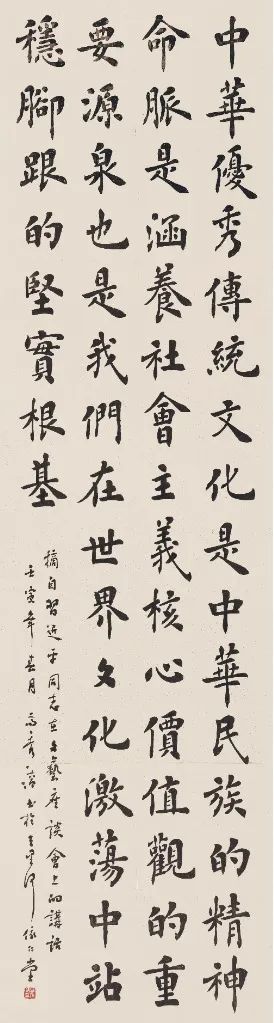 中華優秀傳統文化是中華民族的精神
命脈是涵養社會主義核心價值觀的重
要源泉也是我們在世界文化激蕩中站
穩腳跟的堅實根基
摘自習近平同志在文藝座談會上的講話
壬寅年春月